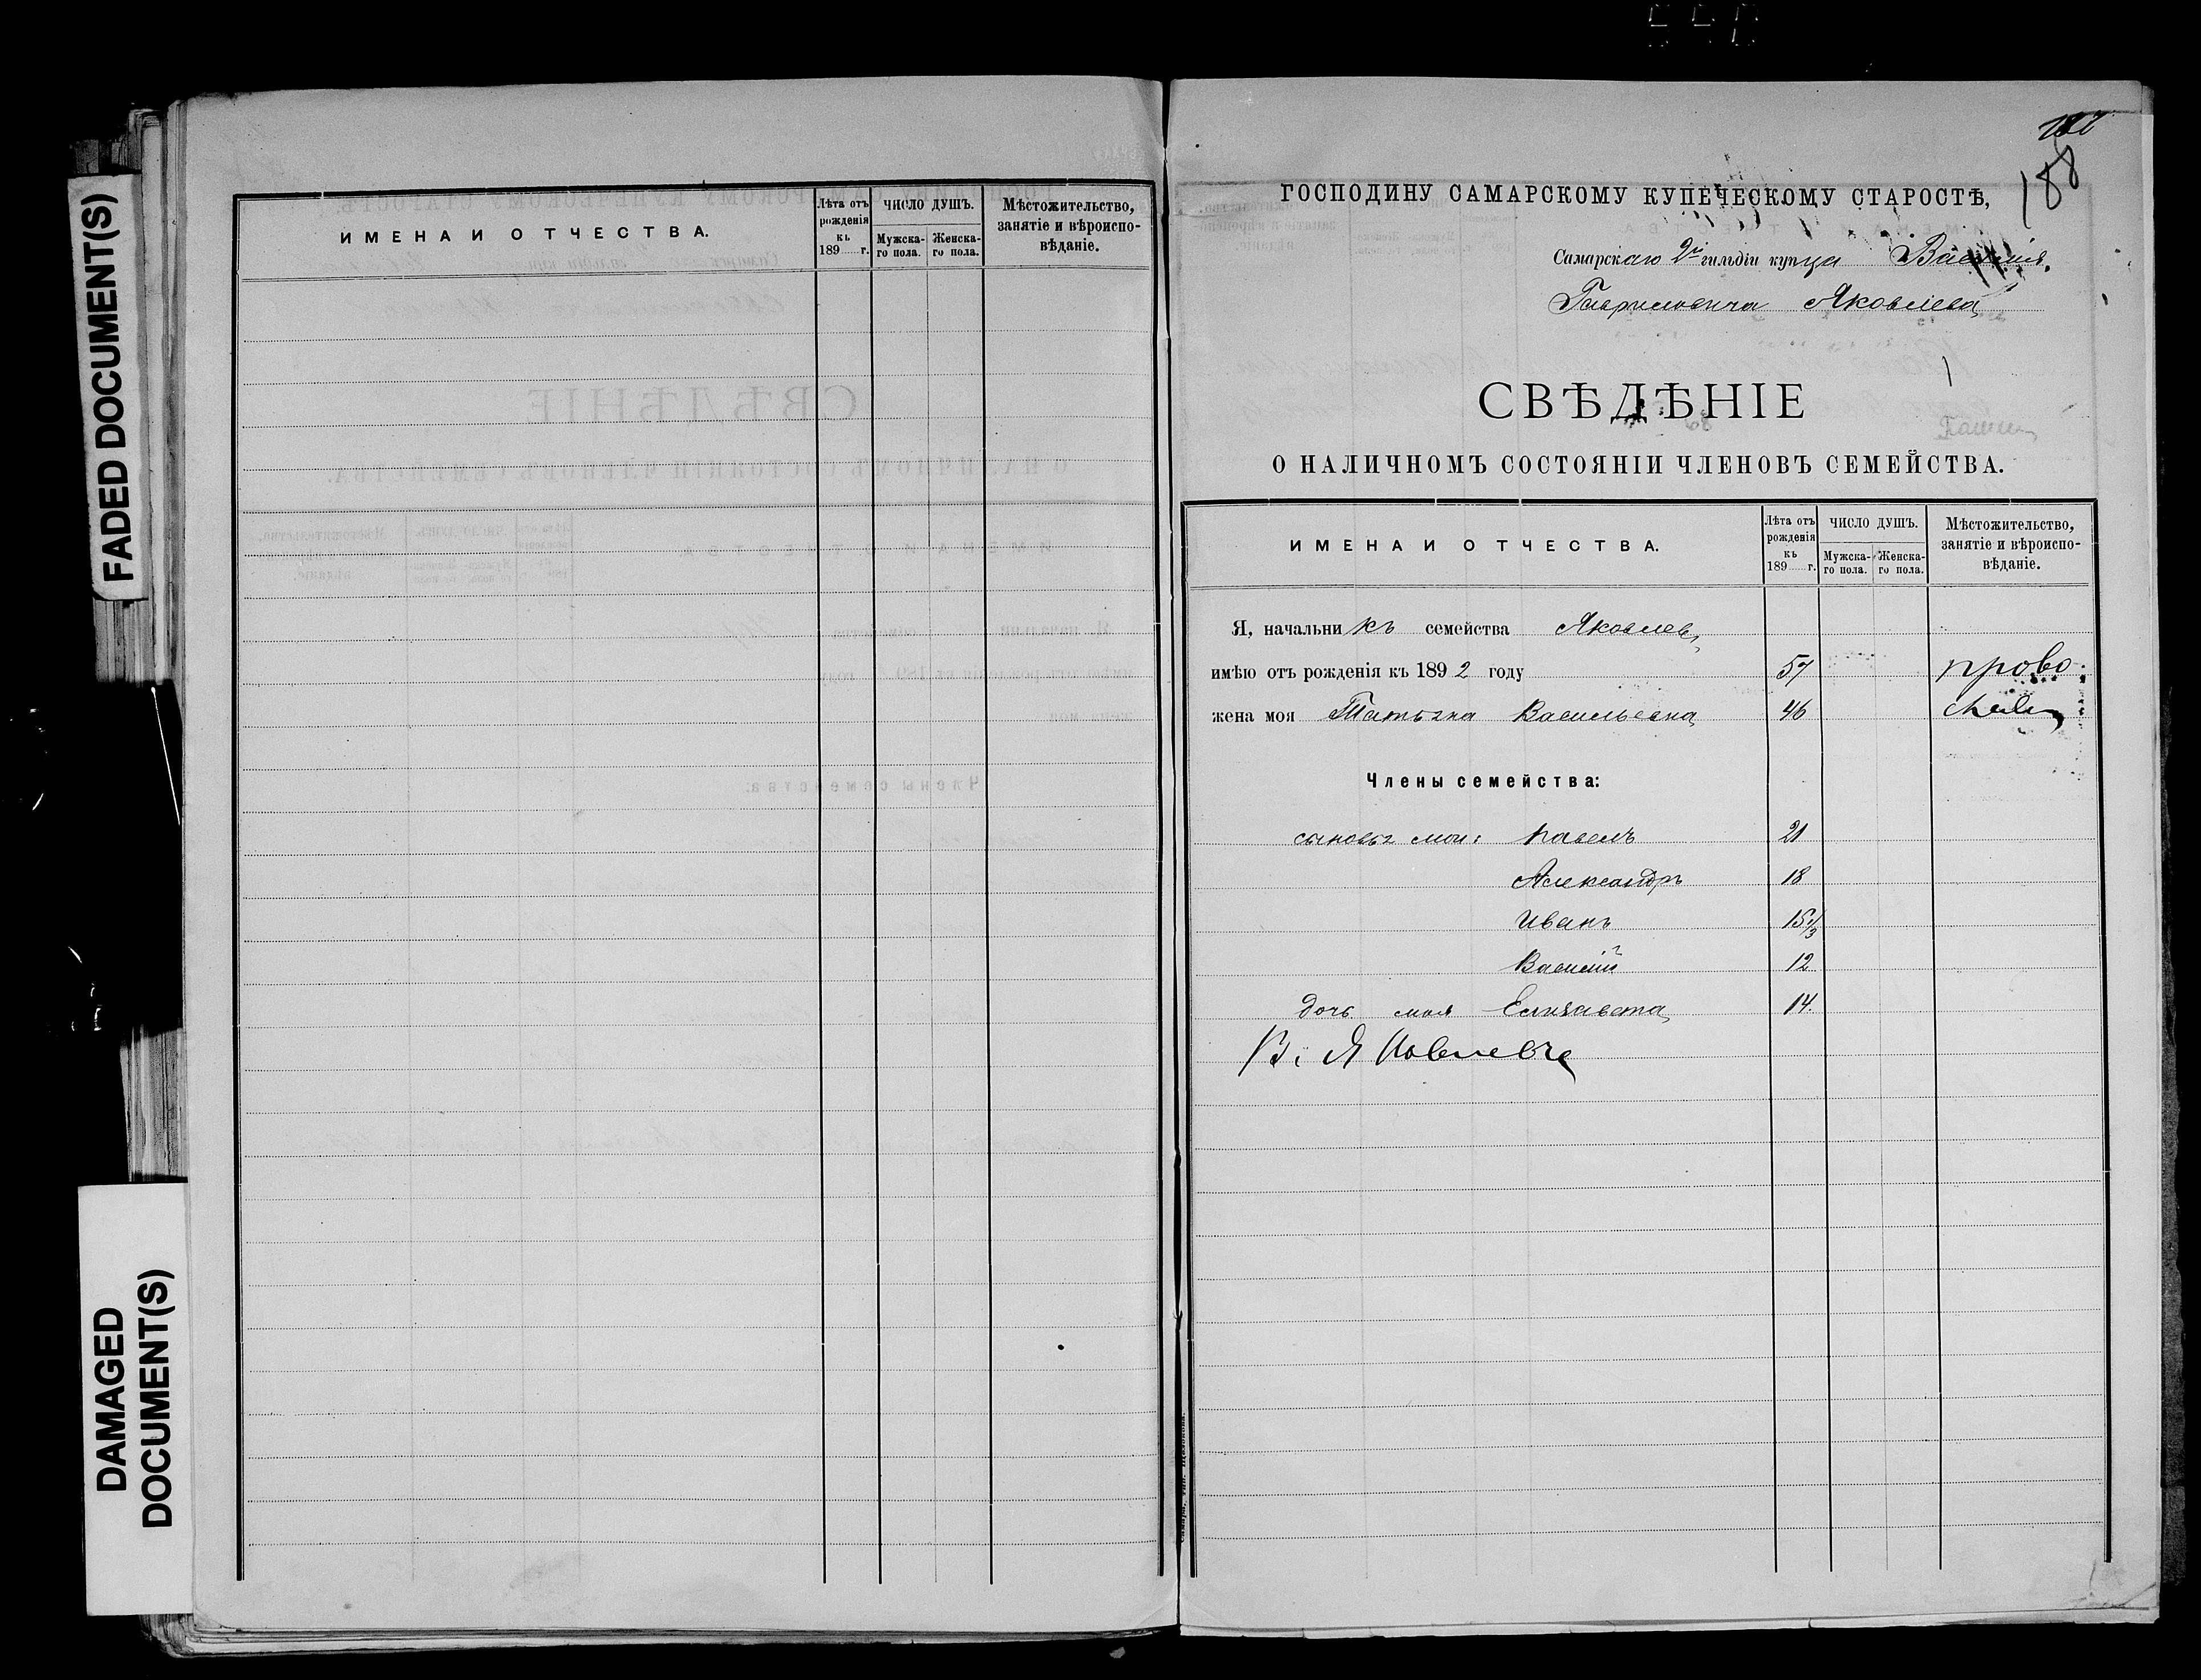 FADED DOCUMENT(S)
DAMAGED
DOCUMENT(S)
ИМЕНА И ОТЧЕСТВА.
Лѣта отъ рожденія къ 189 г.
ЧИСЛО ДУШЪ.
Мужска-го пола.
Женска-го пола.
Мѣстожительство,
занятіе и вѣроиспо-
вѣданіе.
188
ГОСПОДИНУ САМАРСКОМУ КУПЕЧЕСКОМУ СТАРОСТѢ,
Самарскаго 2й гильдіи купца Василія
Гавриловича Яковлева
СВѢДѢНІЕ
О НАЛИЧНОМЪ СОСТОЯНІИ ЧЛЕНОВЪ СЕМЕЙСТВА.
ИМЕНА И ОТЧЕСТВА.
Лѣта отъ рожденія къ 189 г.
ЧИСЛО ДУШЪ.
Мужска-го пола.
Женска-го пола.
Мѣстожительство,
занятіе и вѣроиспо-
вѣданіе.
Я, начальникъ семейства Яковлевъ
имѣю отъ рожденія къ 1892 году 57
жена моя Татьяна Васильевна 46
Члены семейства:
сыновья мои: Павелъ 21
Александръ 18
Иванъ 15 1/3
Василій 12
дочь моя Елизавета 14.
В. Яковлевъ